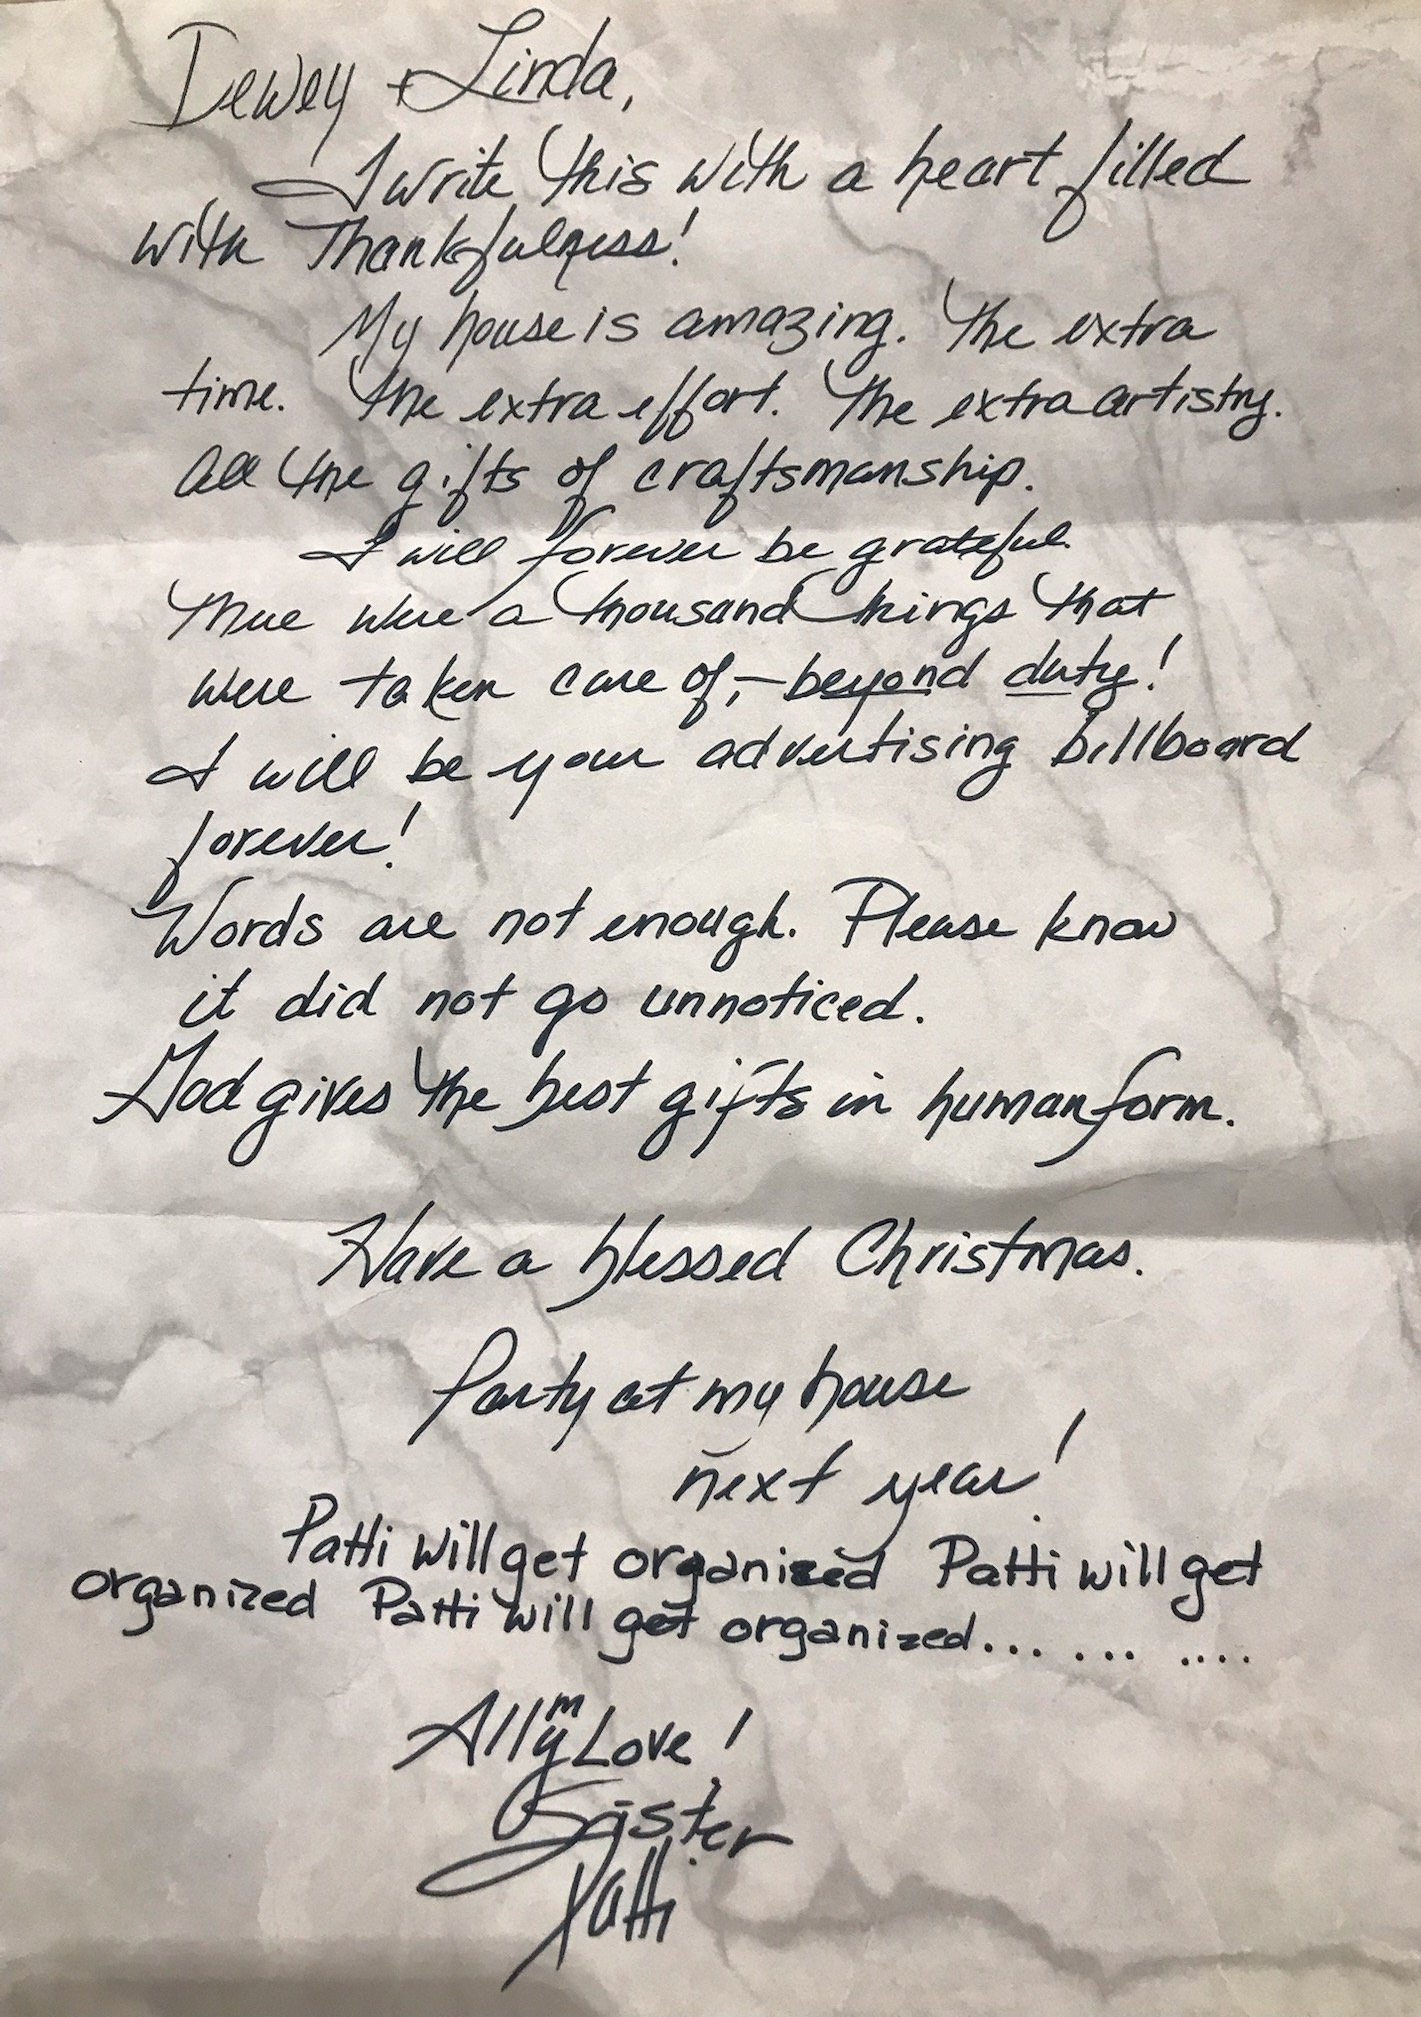 Dewey + Linda,
I write this with a heart filled
with Thankfulness!
My house is amazing. The extra
time. The extra effort. The extra artistry.
All the gifts of craftsmanship.
I will forever be grateful.
There were a thousand things that
were taken care of, - beyond duty!
I will be your advertising billboard
forever!
Words are not enough. Please know
it did not go unnoticed.
God gives the best gifts in human form.
Have a blessed Christmas.
Party at my house
next year!
Patti will get organized Patti will get
organized Patti will get organized... ... ....
All my Love!
Sister
Patti